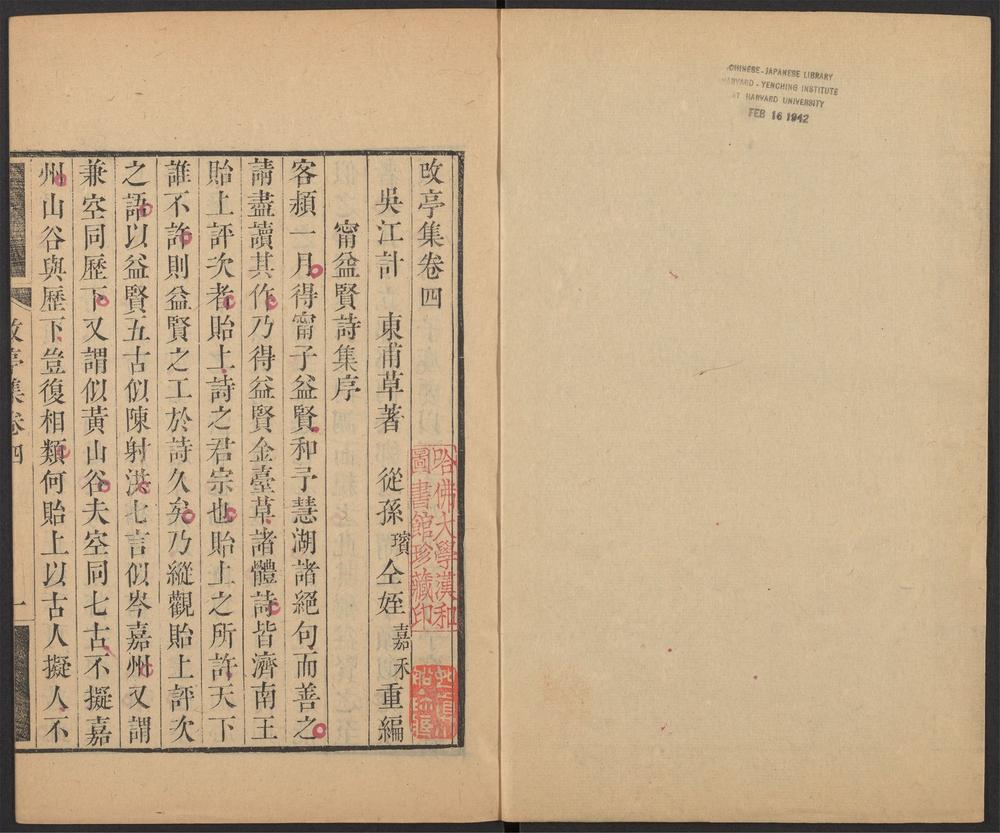 CHINESE-JAPANESE LIBRARY
HARVARD-YENCHING INSTITUTE
AT HARVARD UNIVERSITY
FEB 16 1942
攺亭集卷四
吳江計 東甫草著 從孫 璸 仝姪 嘉禾 重編
甯益賢詩集序
客頻一月得甯子益賢和予慧湖諸絕句而善之
請盡讀其作乃得益賢金臺草諸體詩皆濟南王
貽上評次者貽上詩之君宗也貽上之所許天下
誰不許則益賢之工於詩久矣乃縱觀貽上評次
之語以益賢五古似陳射洪七言似岑嘉州又謂
兼空同歷下又謂似黃山谷夫空同七古不擬嘉
州山谷與歷下豈復相類何貽上以古人擬人不
攺亭集卷四
一
哈佛大學漢和
圖書館珍藏印